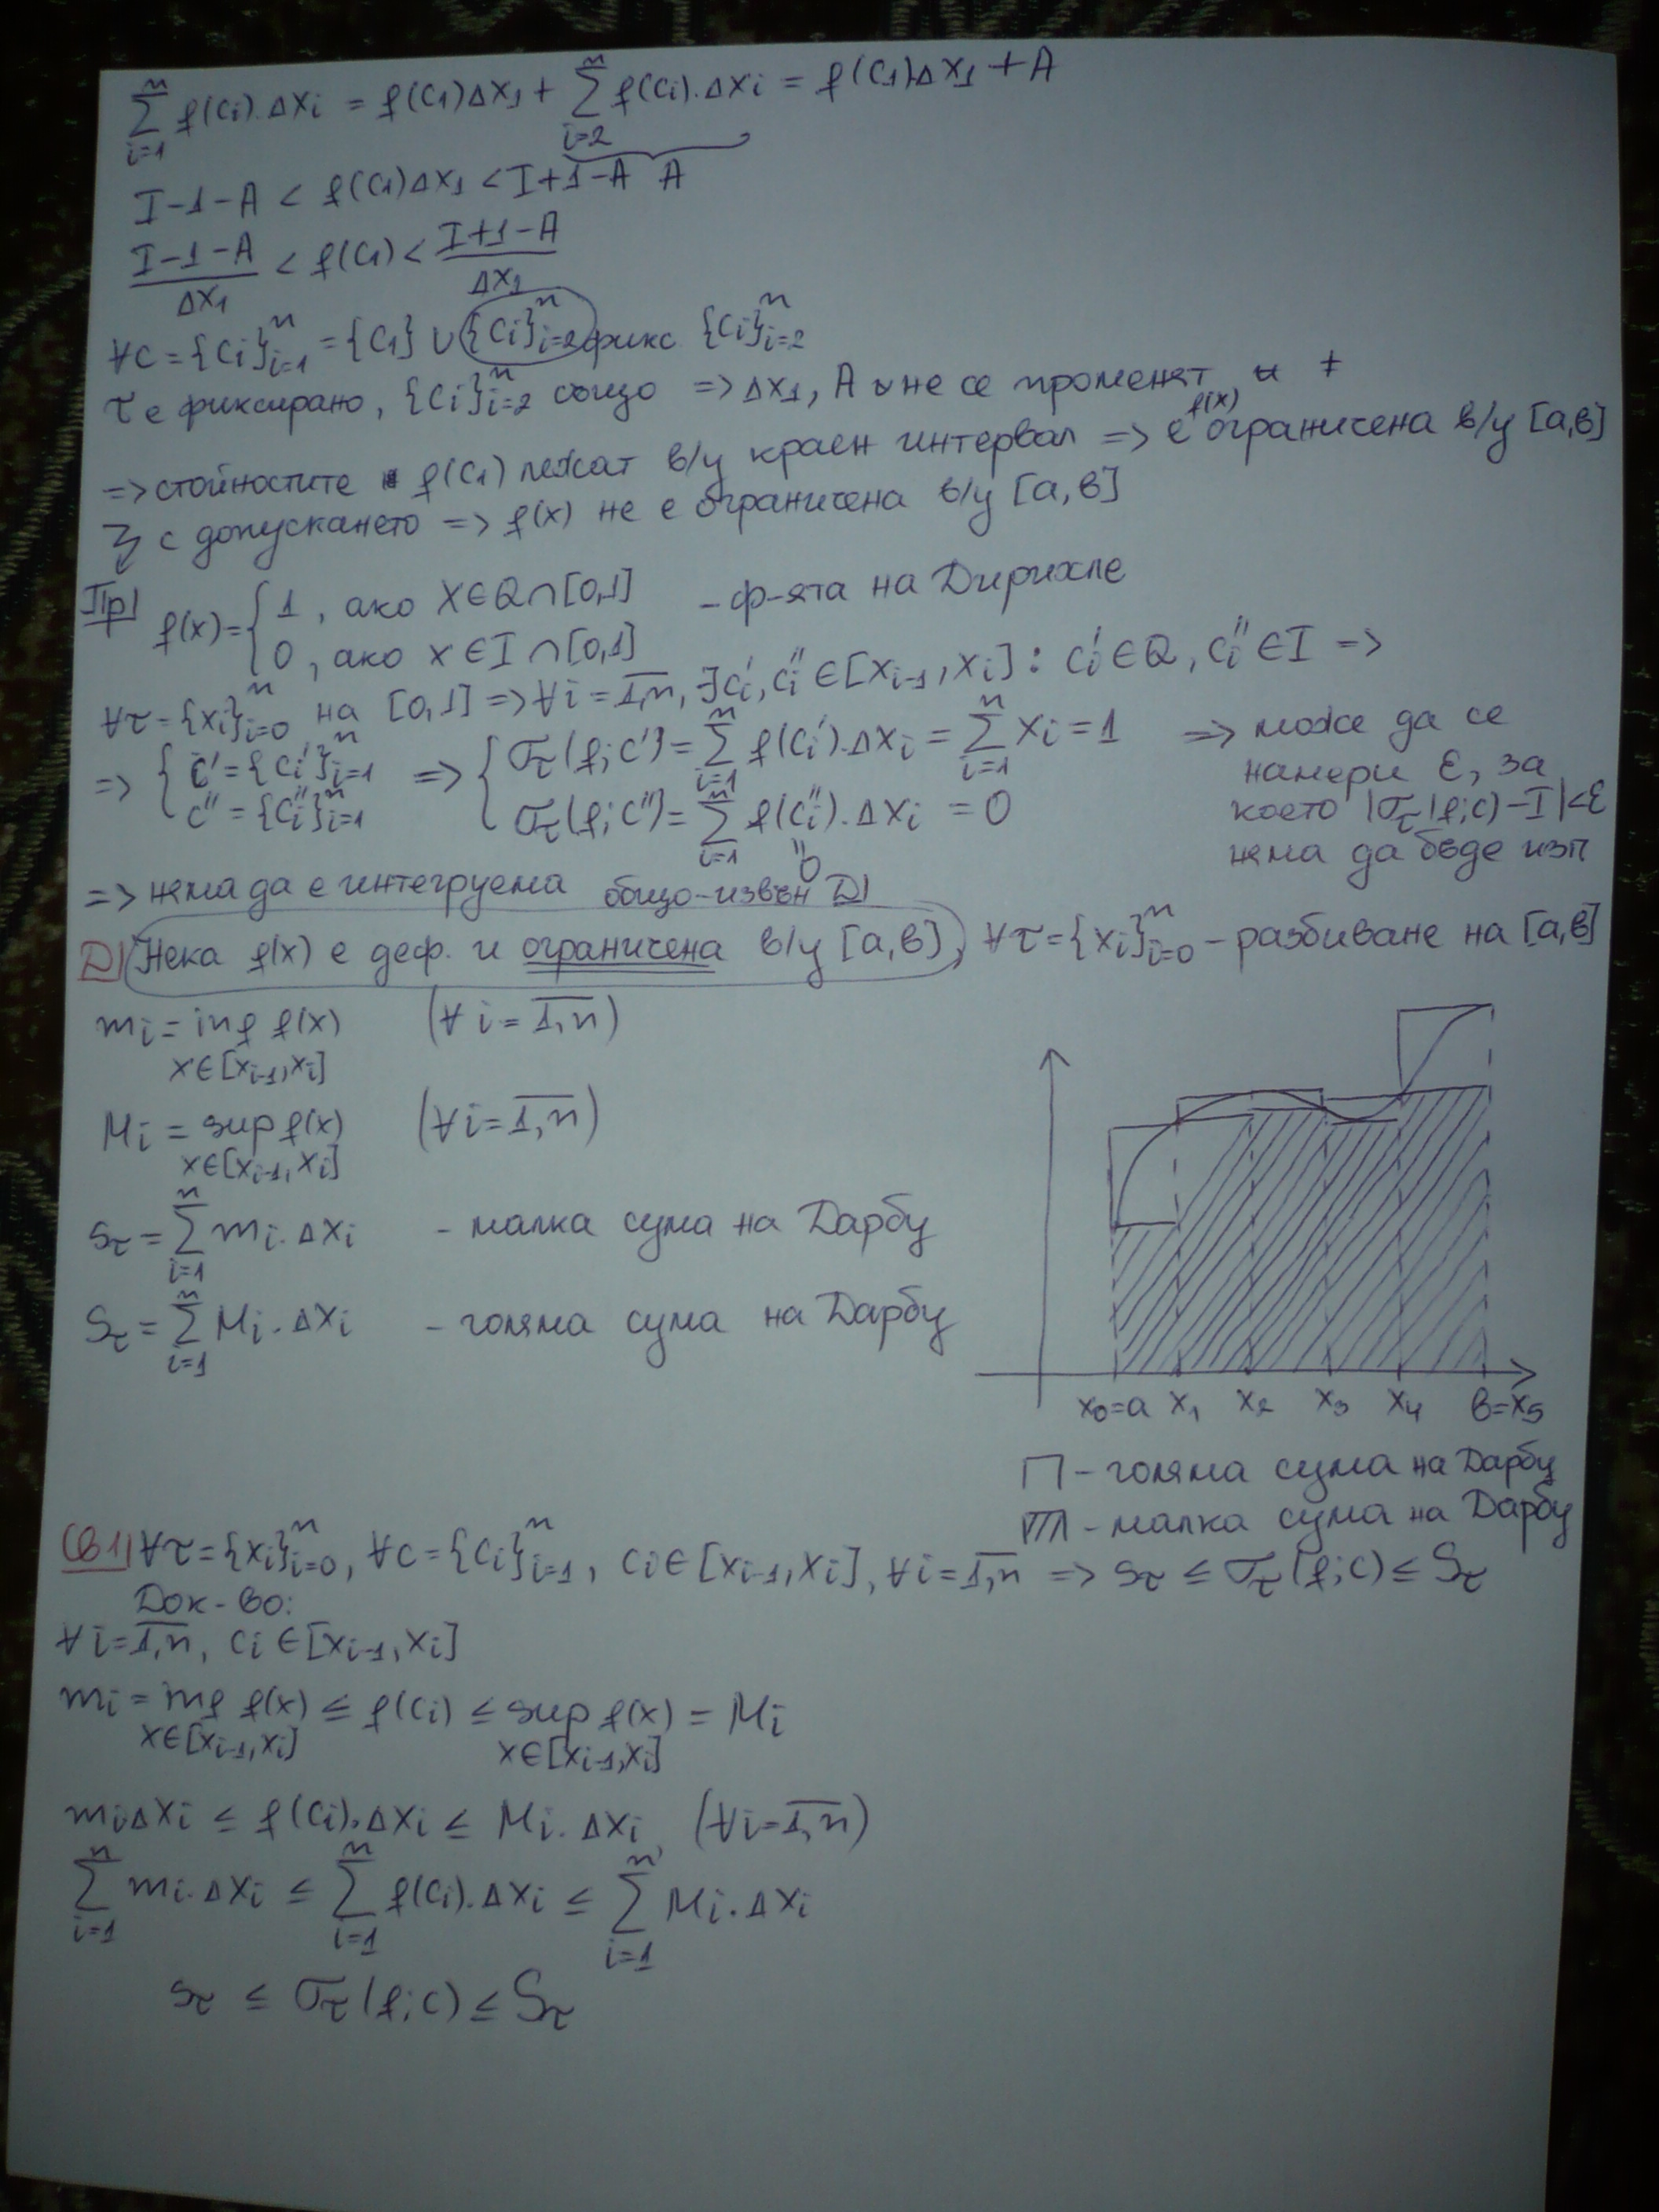 ∑_{i=1}^{n} f(ci).Δxi = f(c1)Δx1 + ∑_{i=2}^{n} f(ci).Δxi = f(c1)Δx1 + A
I-1-A < f(c1)Δx1 < I+1-A A
(I-1-A)/Δx1 < f(c1) < (I+1-A)/Δx1
∀c = {ci}_{i=1}^{n} = {c1} ∪ {ci}_{i=2}^{n} фикс. {ci}_{i=2}^{n}
τ е фиксирано, {ci}_{i=2}^{n} също => Δx1, A не се променят
=> стойностите f(c1) лежат в/у краен интервал => f(x) е ограничена в/у [a,b]
с допускането => f(x) не е ограничена в/у [a,b]
Пр| f(x) = { 1, ако x∈Q∩[0,1] - ф-ята на Дирихле
0, ако x∈I∩[0,1]
∀τ = {xi}_{i=0}^{n} на [0,1] => ∀i=1,n, ∃ci', ci'' ∈ [xi-1, xi] : ci' ∈ Q, ci'' ∈ I =>
=> { c' = {ci'}_{i=1}^{n} => { στ(f;c') = ∑_{i=1}^{n} f(ci').Δxi = ∑_{i=1}^{n} xi = 1 => може да се
c'' = {ci''}_{i=1}^{n} στ(f;c'') = ∑_{i=1}^{n} f(ci'').Δxi = 0 намери ε, за
"0 което |στ(f;c)-I|<ε
няма да бъде изп
=> няма да е интегруема общо-извън D|
D| Нека f(x) е деф. и ограничена в/у [a,b], ∀τ = {xi}_{i=0}^{n} - разбиване на [a,b]
mi = inf f(x) (∀i=1,n)
x∈[xi-1,xi]
Mi = sup f(x) (∀i=1,n)
x∈[xi-1,xi]
sτ = ∑_{i=1}^{n} mi.Δxi - малка сума на Дарбу
Sτ = ∑_{i=1}^{n} Mi.Δxi - голяма сума на Дарбу
x0=a x1 x2 x3 x4 b=x5
- голяма сума на Дарбу
- малка сума на Дарбу
Св1| ∀τ = {xi}_{i=0}^{n}, ∀c = {ci}_{i=1}^{n}, ci ∈ [xi-1, xi], ∀i=1,n => sτ ≤ στ(f;c) ≤ Sτ
Док-во:
∀i=1,n, ci ∈ [xi-1, xi]
mi = inf f(x) ≤ f(ci) ≤ sup f(x) = Mi
x∈[xi-1,xi] x∈[xi-1,xi]
miΔxi ≤ f(ci).Δxi ≤ Mi.Δxi (∀i=1,n)
∑_{i=1}^{n} mi.Δxi ≤ ∑_{i=1}^{n} f(ci).Δxi ≤ ∑_{i=1}^{n} Mi.Δxi
sτ ≤ στ(f;c) ≤ Sτ